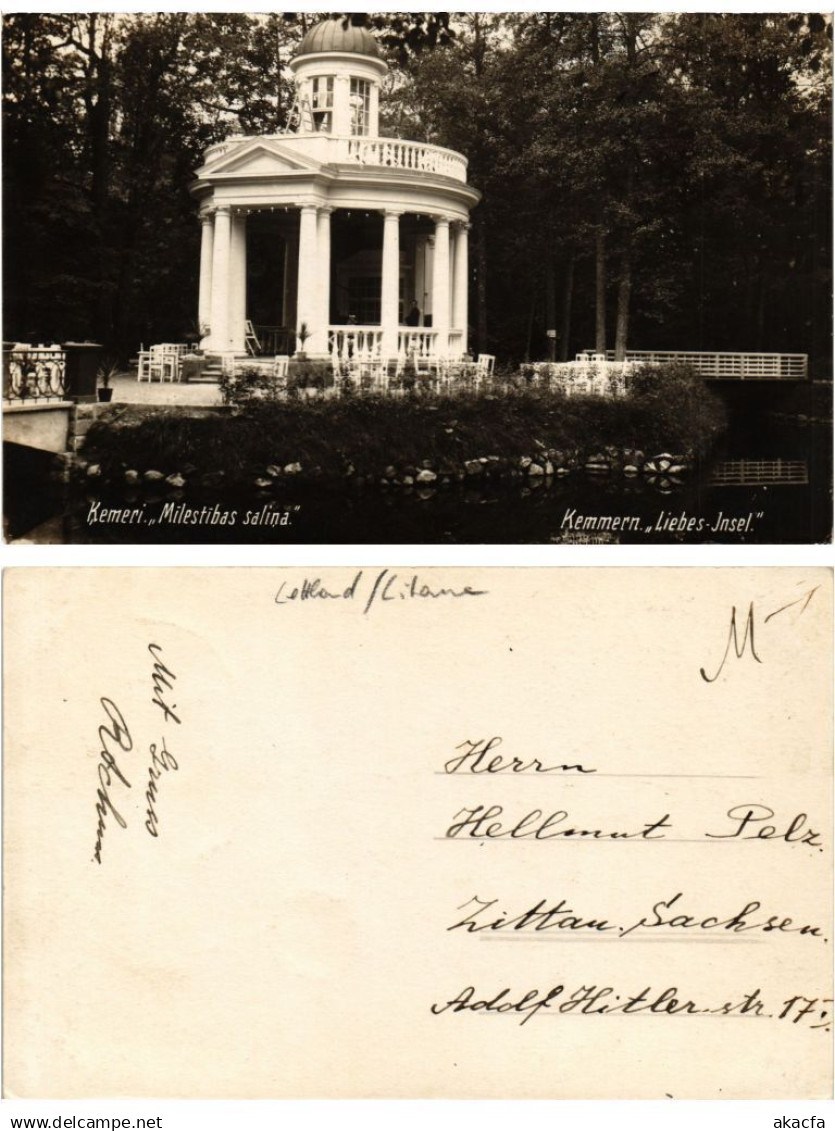 Ķemeri. „Milestibas saliņa."
Kemmern. „Liebes-Jnsel."
Lettland/Litauen
M
Mit Gruss
Herrn
Hellmut Pelz.
Zittau. Sachsen.
Adolf Hitler str. 17 I.
akacfa
www.delcampe.net